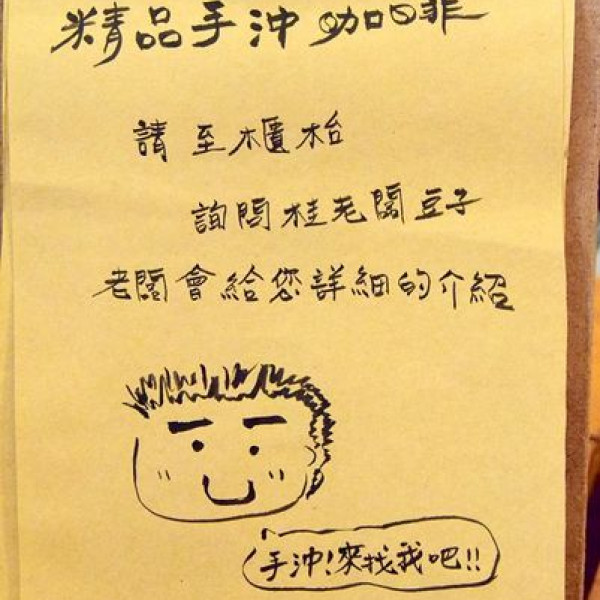 精品手沖咖啡
請至櫃枱
詢問桂老闆豆子
老闆會給您詳細的介紹
手沖!來找我吧!!